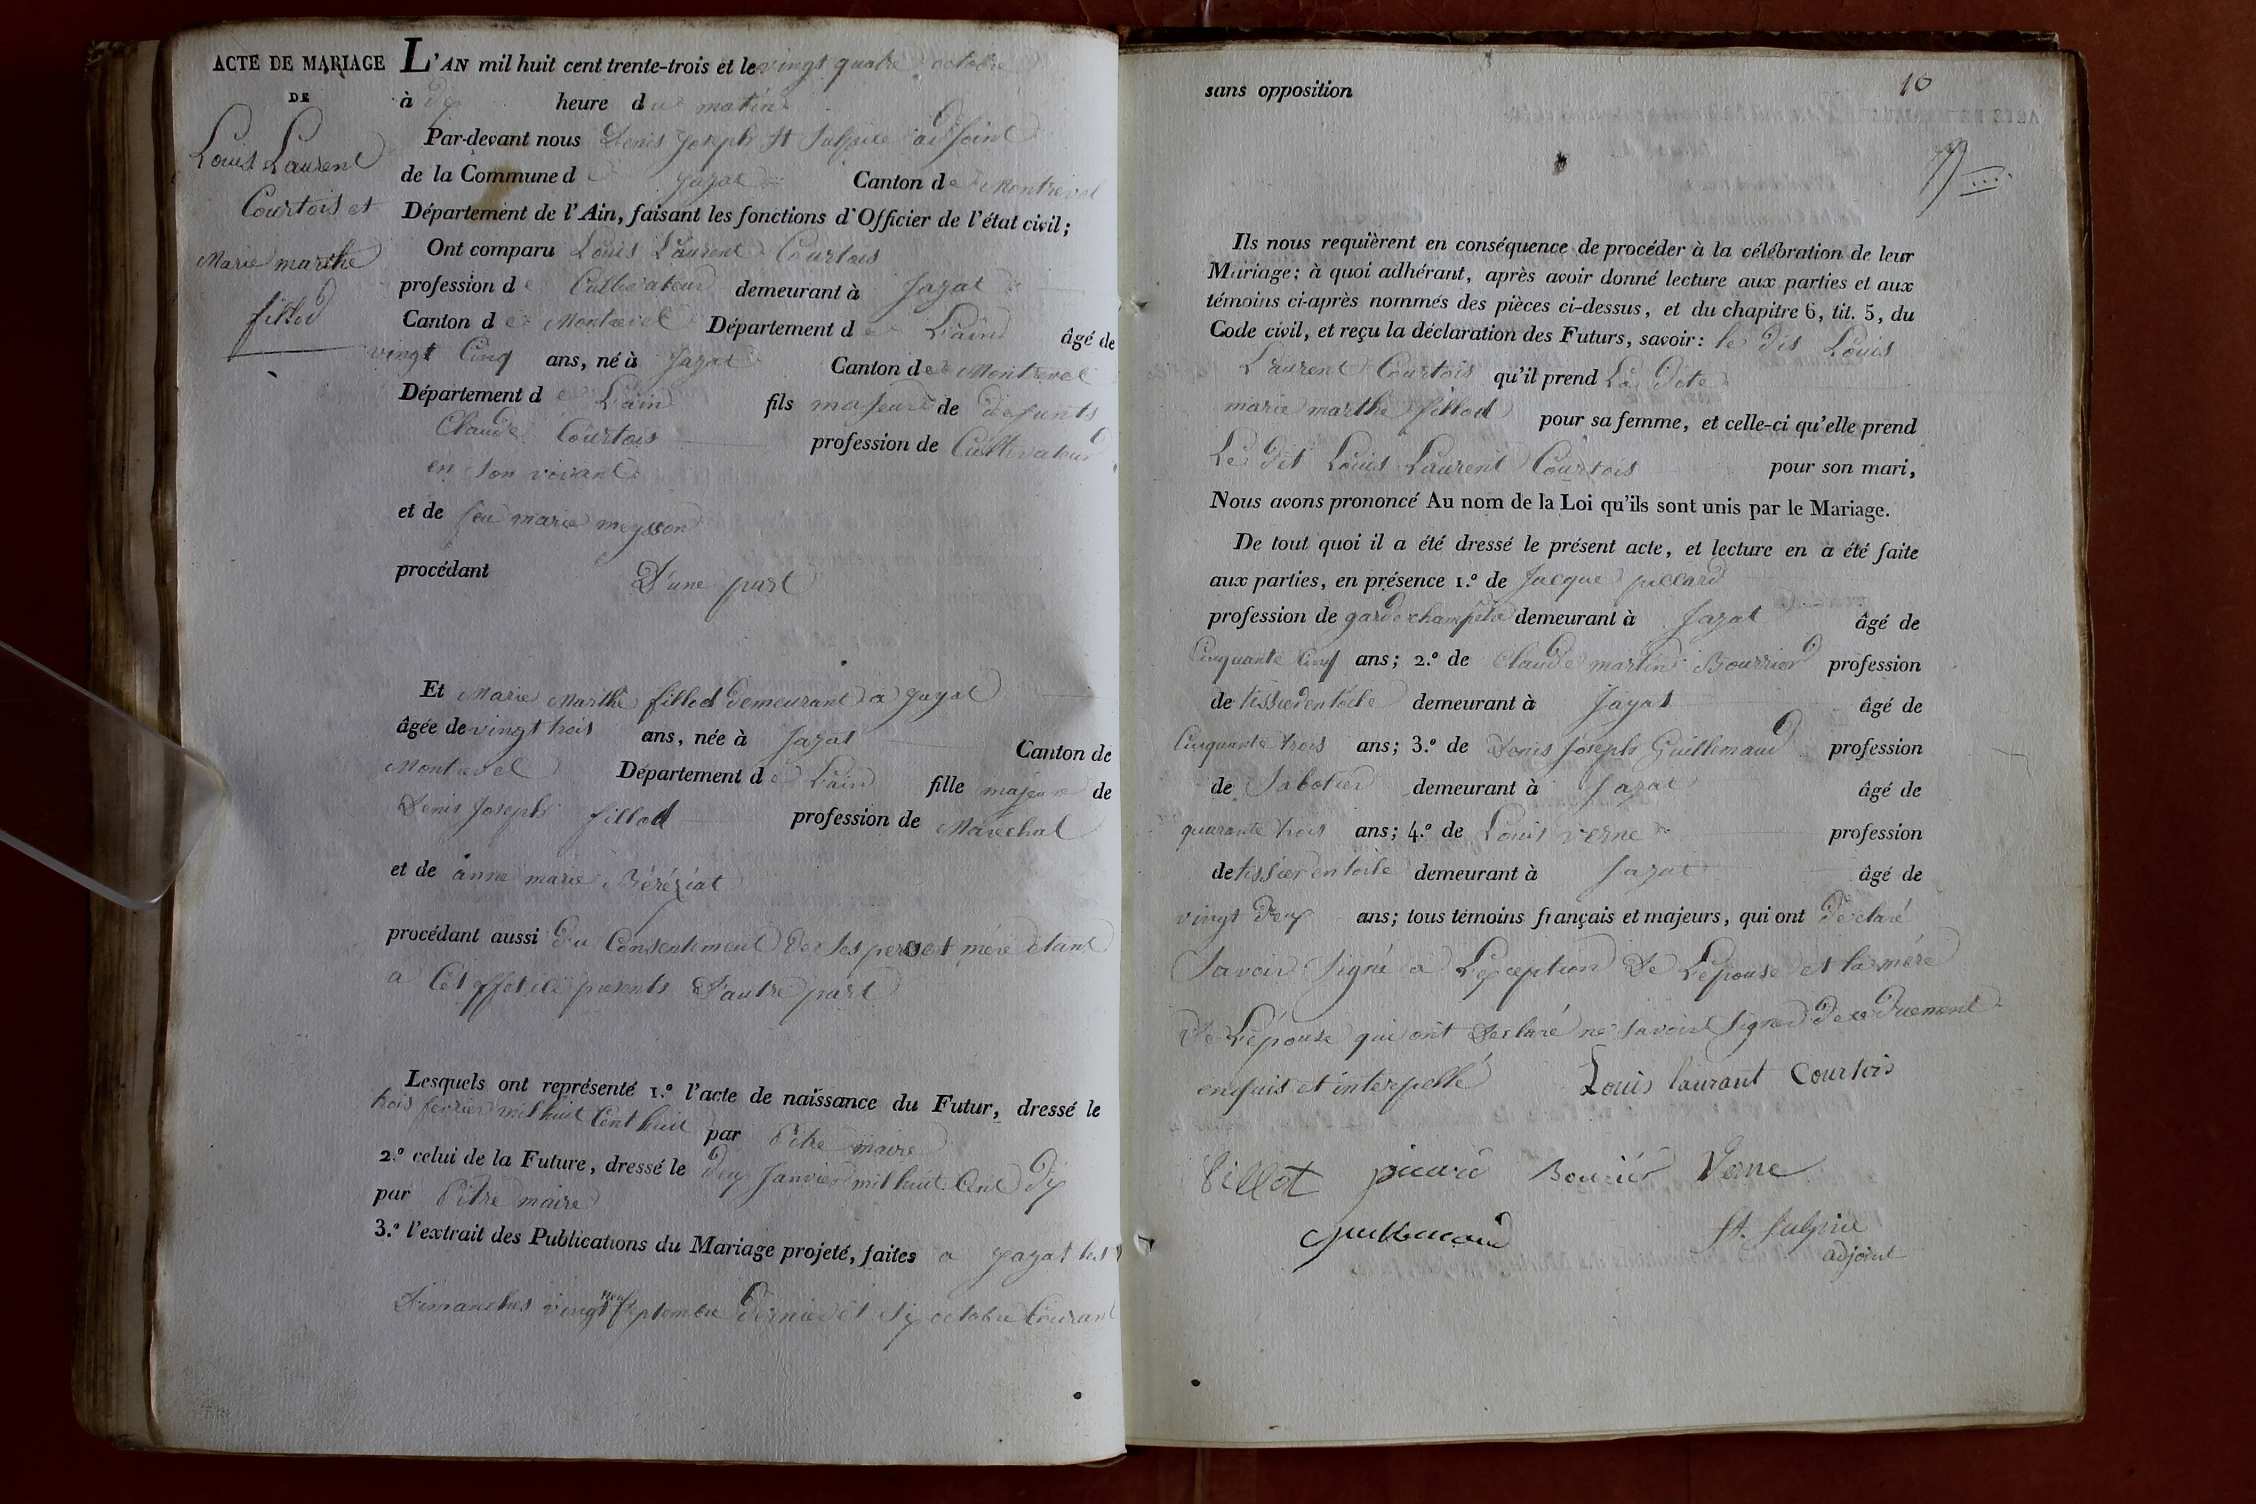 ACTE DE MARIAGE
DE
Louis Laurent
Courtois et
Marie marthe
fillod
L'AN mil huit cent trente-trois et le vingt quatre octobre
à dix heure du matin
Par-devant nous Denis Joseph St Sulpice adjoint
de la Commune de Jayat Canton de Montrevel
Département de l'Ain, faisant les fonctions d'Officier de l'état civil;
Ont comparu Louis Laurent Courtois
profession de Cultivateur demeurant à Jayat
Canton de Montrevel Département de L'ain âgé de
vingt Cinq ans, né à Jayat Canton de Montrevel
Département de L'ain fils majeur de defunts
Claude Courtois profession de Cultivateur
en son vivant
et de feu marie meysson
procédant D'une part
Et Marie Marthe fillod demeurant a Jayat
âgée de vingt trois ans, née à Jayat Canton de
Montrevel Département de L'ain fille majeure de
Denis Joseph fillod profession de Maréchal
et de anne marie Béréziat
procédant aussi du Consentement de ses pere et mére étant
a Cet effet ici présents D'autre part
Lesquels ont représenté 1.° l'acte de naissance du Futur, dressé le
trois fevrier mil huit Cent huit par Pitre maire
2.° celui de la Future, dressé le deux Janvier mil huit Cent dix
par Pitre maire
3.° l'extrait des Publications du Mariage projeté, faites a Jayat les
Dimanches vingt neuf septembre dernier et six octobre Courant
10
sans opposition
Ils nous requièrent en conséquence de procéder à la célébration de leur
Mariage; à quoi adhérant, après avoir donné lecture aux parties et aux
témoins ci-après nommés des pièces ci-dessus, et du chapitre 6, tit. 5, du
Code civil, et reçu la déclaration des Futurs, savoir: le dit Louis
Laurent Courtois qu'il prend La dite
marie marthe fillod pour sa femme, et celle-ci qu'elle prend
Le dit Louis Laurent Courtois pour son mari,
Nous avons prononcé Au nom de la Loi qu'ils sont unis par le Mariage.
De tout quoi il a été dressé le présent acte, et lecture en a été faite
aux parties, en présence 1.° de Jacque
profession de garde champetre demeurant à Jayat âgé de
Cinquante Cinq ans; 2.° de Claude martin Bourrier profession
de tissier en toile demeurant à Jayat âgé de
Cinquante trois ans; 3.° de Denis Joseph Guillemaud profession
de Sabotier demeurant à Jayat âgé de
quarante trois ans; 4.° de Louis verne profession
de tissier en toile demeurant à Jayat âgé de
vingt deux ans; tous témoins français et majeurs, qui ont declaré
Savoir Signé a L'exception De L'epouse et la mére
De L'épouse qui ont declaré ne savoir signer de ce duement
enquis et interpellé Louis laurant Courtois
fillot picard Bourier Verne
guillemaud St. Sulpice
adjoint